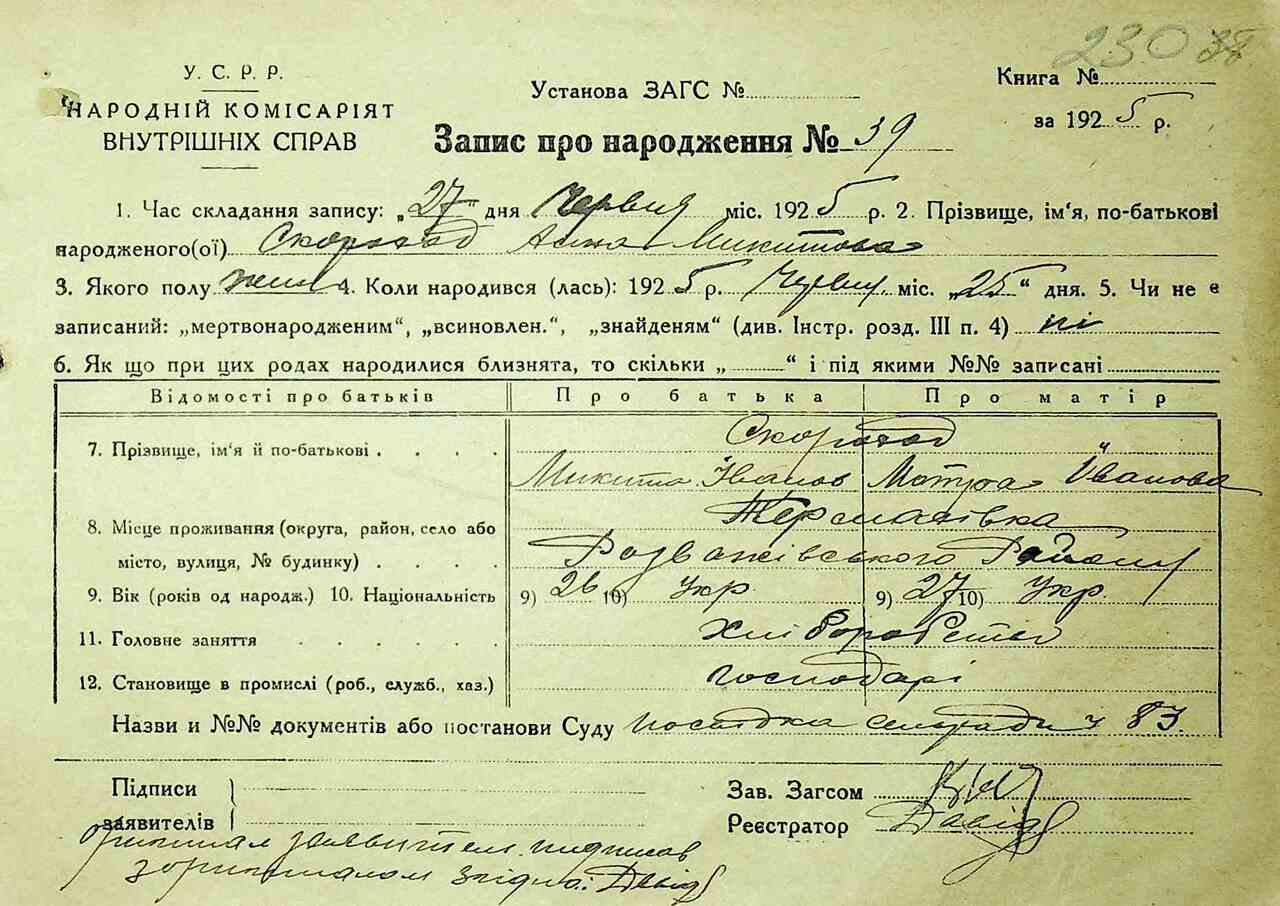 230 38
У. С. Р. Р.
НАРОДНІЙ КОМІСАРІЯТ
ВНУТРІШНІХ СПРАВ
Установа ЗАГС №
Книга №
за 1925 р.
Запис про народження № 39
1. Час складання запису: „27" дня Червня міс. 1925 р. 2. Прізвище, ім'я, по-батькові
народженого(ої) Скороход Анна Микитова
3. Якого полу жін 4. Коли народився (лась): 1925 р. Червня міс. „25" дня. 5. Чи не є
записаний: „мертвонародженим", „всиновлен.", „знайденям" (див. Інстр. розд. III п. 4) ні
6. Як що при цих родах народилися близнята, то скільки „ " і під якими №№ записані
Відомості про батьків Про батька Про матір
7. Прізвище, ім'я й по-батькові . . . . Скороход
Микита Іванов Мотря Іванова
8. Місце проживання (округа, район, село або Термахівка
місто, вулиця, № будинку) . . . . Розважівського Району
9. Вік (років од народж.) 10. Національність 9) 26 10) Укр 9) 27 10) Укр.
11. Головне заняття . . . . . . Хлібороби
12. Становище в промислі (роб., служб., хаз.) господарі
Назви и №№ документів або постанови Суду посвідка сельради ч 83.
Підписи
заявителів
Зав. Загсом
Реєстратор Давид
Оригинал заявител підписав
з оригиналом згідно: Давид